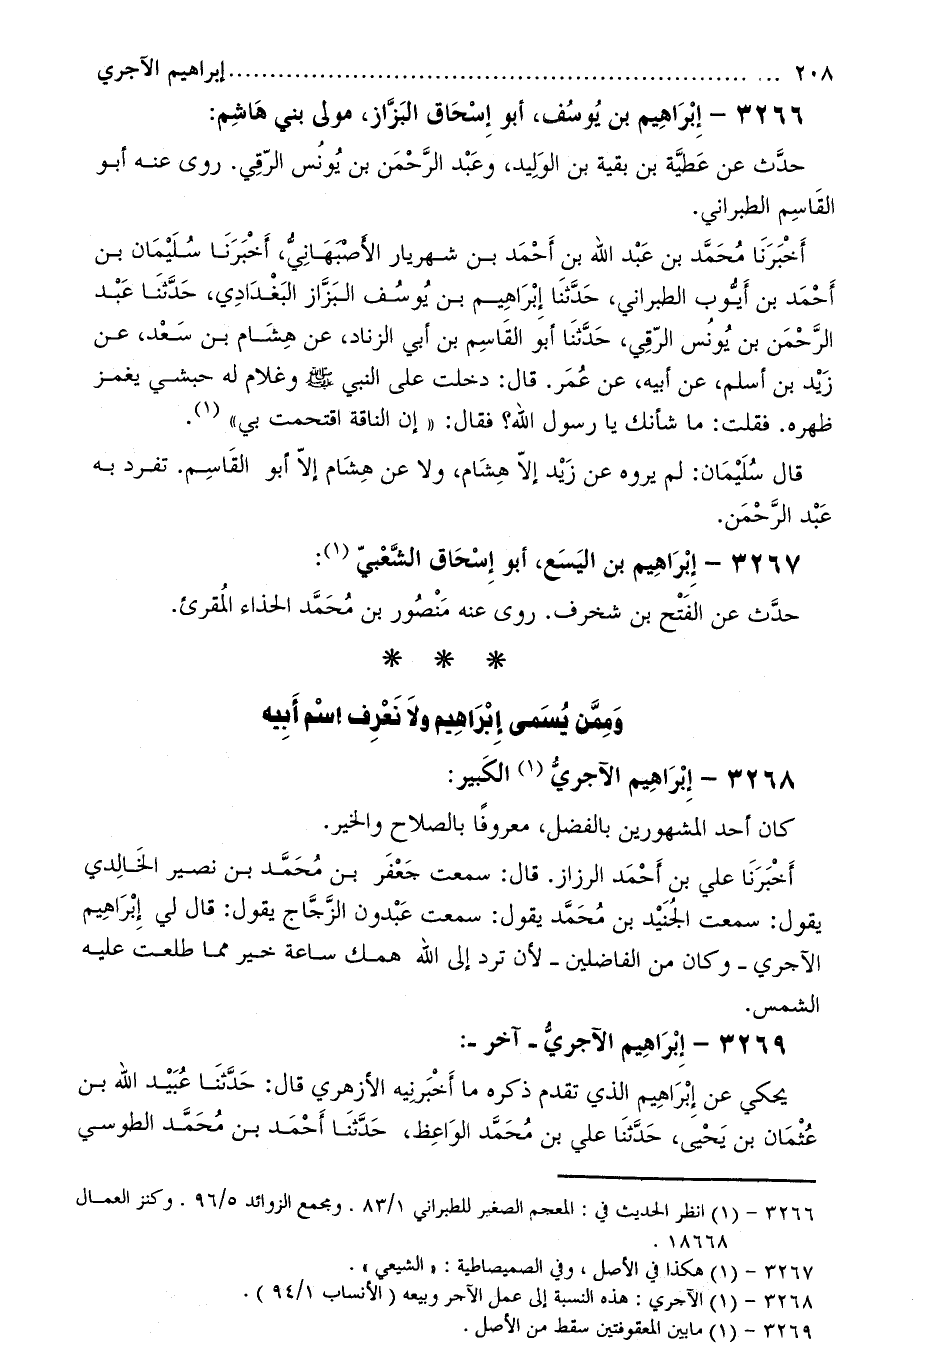 ٢٠٨ ... ................................................................ إبراهيم الآجري
٣٢٦٦ – إِبْرَاهِيم بن يُوسُف، أبو إِسْحَاق البَزَّاز، مولى بني هَاشِم:
حدَّث عن عَطيَّة بن بقية بن الوَلِيد، وعَبْد الرَّحْمَن بن يُونُس الرّقي. روى عنه أبو
القَاسِم الطبراني.
أَخْبَرَنَا مُحَمَّد بن عَبْد الله بن أَحْمَد بن شهريار الأَصْبَهَانِيُّ، أَخْبَرَنَا سُلَيْمَان بن
أَحْمَد بن أَيُّوب الطبراني، حَدَّثَنَا إِبْرَاهِيم بن يُوسُف البَزَّاز البَغْدَادِي، حَدَّثَنَا عَبْد
الرَّحْمَن بن يُونُس الرّقِي، حَدَّثَنَا أبو القَاسِم بن أبي الزناد، عن هِشَام بن سَعْد، عن
زَيْد بن أسلم، عن أبيه، عن عُمَر. قال: دخلت على النبي ﷺ وغلام له حبشي يغمز
ظهره. فقلت: ما شأنك يا رسول الله؟ فقال: « إن الناقة اقتحمت بي» (١).
قال سُلَيْمَان: لم يروه عن زَيْد إلاّ هِشَام، ولا عن هِشَام إلاّ أبو القَاسِم. تفرد به
عَبْد الرَّحْمَن.
٣٢٦٧ – إِبْرَاهِيم بن اليَسَع، أبو إِسْحَاق الشَّعْبيّ (١):
حدَّث عن الفَتْح بن شخرف. روى عنه مَنْصُور بن مُحَمَّد الحذاء المُقرئ.
* * *
وَمِمَّن يُسَمى إِبْرَاهِيم ولاَ نَعْرِف اسْم أَبِيه
٣٢٦٨ – إِبْرَاهِيم الآجريُّ (١) الكَبير:
كان أحد المشهورين بالفضل، معروفًا بالصلاح والخير.
أَخْبَرَنَا علي بن أَحْمَد الرزاز. قال: سمعت جَعْفَر بن مُحَمَّد بن نصير الخَالِدي
يقول: سمعت الجُنَيْد بن مُحَمَّد يقول: سمعت عَبْدون الزَّجَّاج يقول: قال لي إِبْرَاهِيم
الآجري ـ وكان من الفاضلين ـ لأن ترد إلى الله همك ساعة خير مما طلعت عليه
الشمس.
٣٢٦٩ – إِبْرَاهِيم الآجريُّ ـ آخر ـ:
يحكي عن إِبْرَاهِيم الذي تقدم ذكره ما أَخْبَرنِيه الأزهري قال: حَدَّثَنَا عُبَيْد الله بن
عُثْمَان بن يَحْيى، حَدَّثَنَا علي بن مُحَمَّد الوَاعِظ، حَدَّثَنَا أَحْمَد بن مُحَمَّد الطوسي
٣٢٦٦ – (١) انظر الحديث في : المعجم الصغير للطبراني ٨٣/١ . ومجمع الزوائد ٩٦/٥ . وكنز العمال
١٨٦٦٨ .
٣٢٦٧ – (١) هكذا في الأصل ، وفي الصميصاطية : « الشيعي » .
٣٢٦٨ – (١) الآجري : هذه النسبة إلى عمل الآجر وبيعه ( الأنساب ٩٤/١ ) .
٣٢٦٩ – (١) مابين المعقوفتين سقط من الأصل .